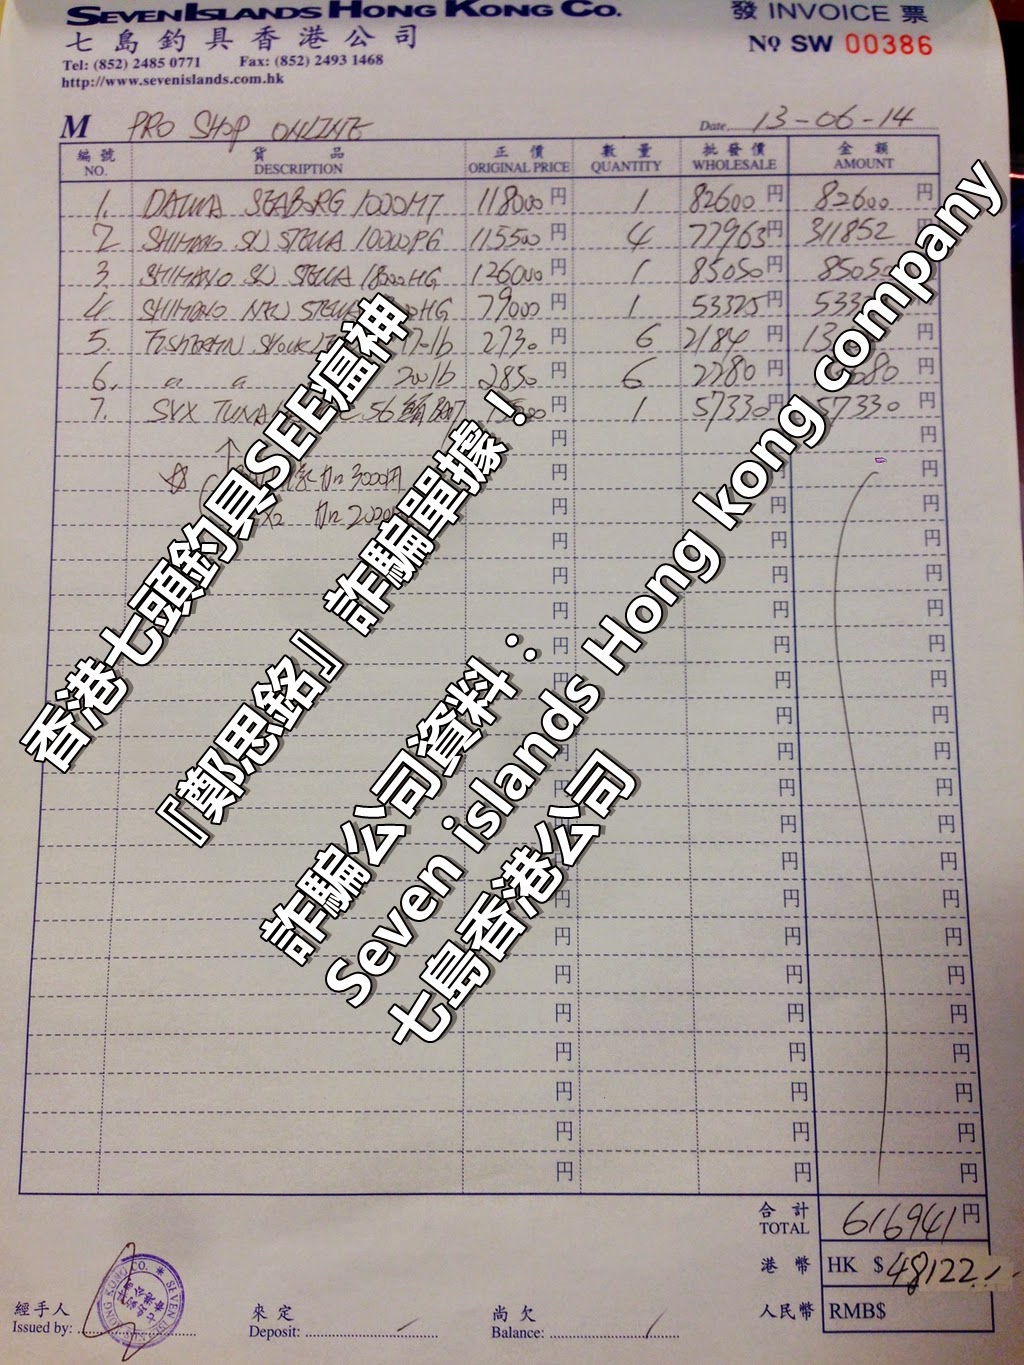 SEVENISLANDS HONG KONG CO.
發 INVOICE 票
七島釣具香港公司
Nº SW 00386
Tel: (852) 2485 0771 Fax: (852) 2493 1468
http://www.sevenislands.com.hk
M PRO SHOP ONLINE
Date 13-06-14
編號 貨品 正價 數量 批發價 金額
NO. DESCRIPTION ORIGINAL PRICE QUANTITY WHOLESALE AMOUNT
1. DAIWA SEABORG 1000MT 118000 円 1 82600 円 82600 円
2 SHIMANO SW STELLA 10000PG 115500 円 4 77963 円 311852 円
3. SHIMANO SW STELLA 18000HG 126000 円 1 85050 円
4. SHIMANO NEW STELLA HG 79000 円 1 53325 円
5. 17-1b 2730 円 6 2184 円 円
6. " " 20lb 2850 円 6 2280 円 円
7. SVX TUNA 56 円 1 57330 円 57330 円
加 3000円
x2 加
香港七頭釣具SEE瘟神
『鄭思銘』詐騙單據！
詐騙公司資料：
Seven islands Hong kong company
七島香港公司
合計
TOTAL 616941 円
港幣 HK $ 48122.
人民幣 RMB$
經手人 來定 尚欠
Issued by: Deposit: Balance:
SEVEN ISLANDS HONG KONG CO.